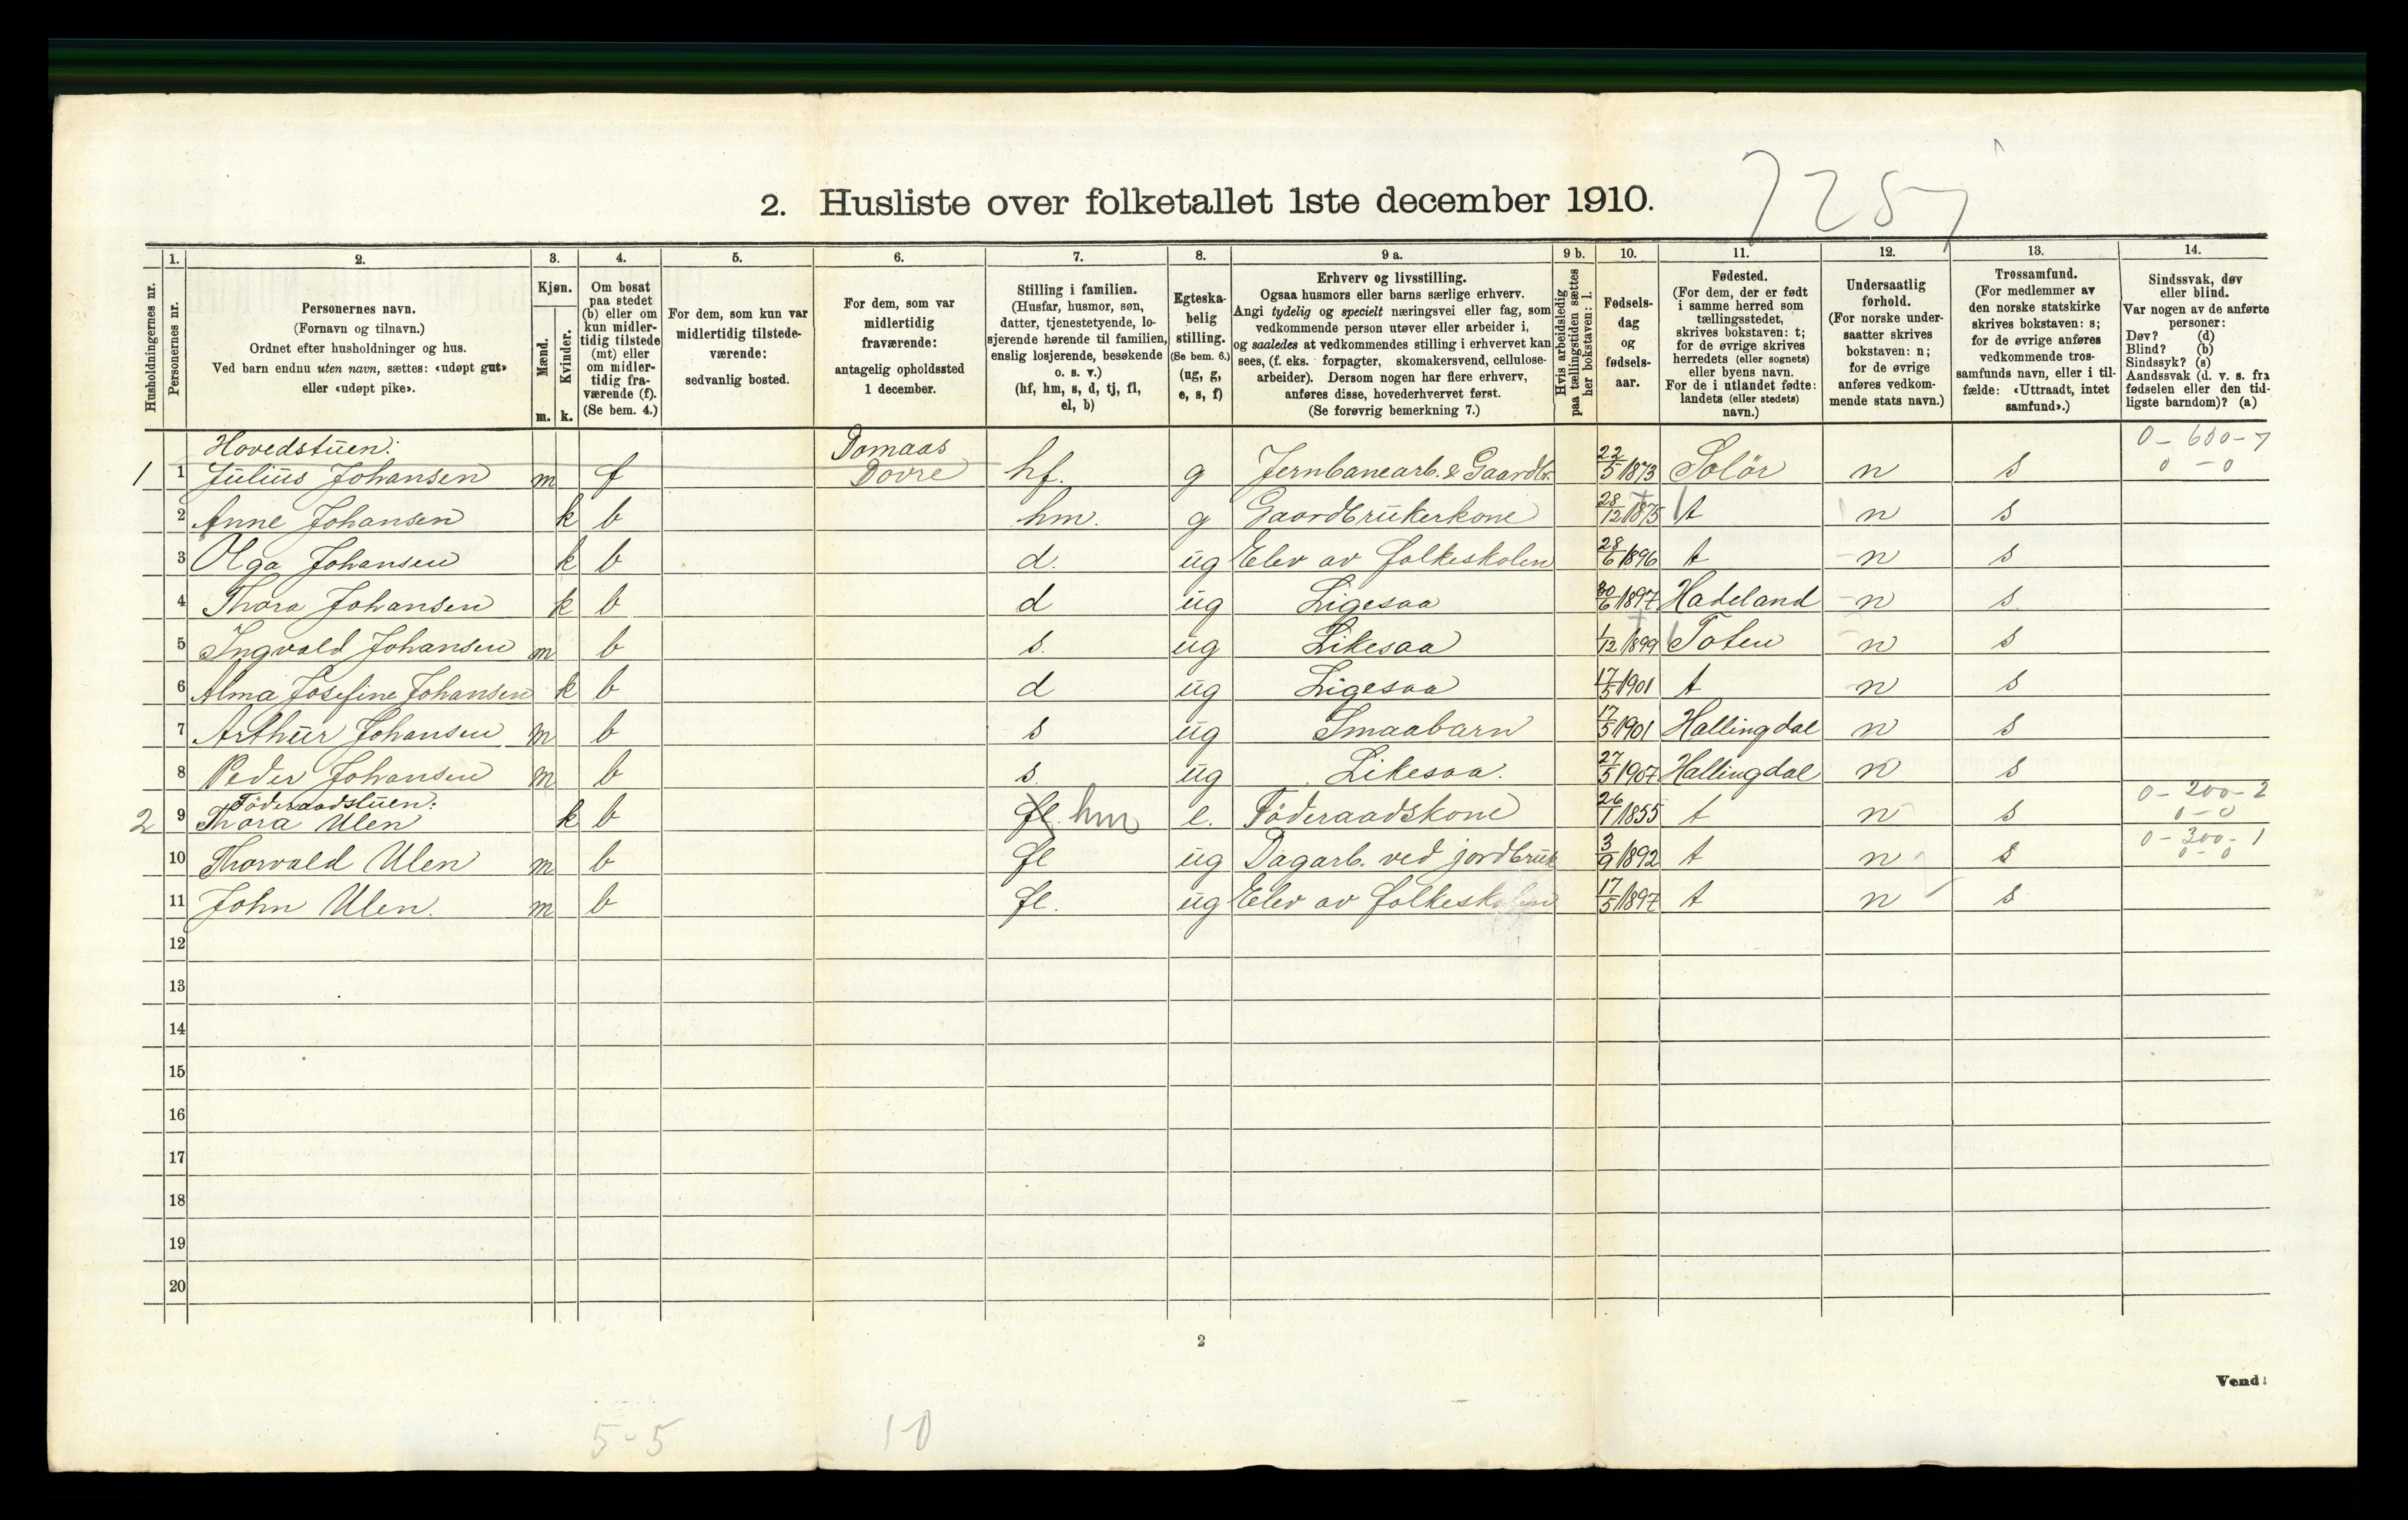 7257
2. Husliste over folketallet 1ste december 1910.
Husholdningernes nr.
1. Personernes nr.
2. Personernes navn.
(Fornavn og tilnavn.)
Ordnet efter husholdninger og hus.
Ved barn endnu uten navn, sættes: «udøpt gut»
eller «udøpt pike».
3. Kjøn.
Mænd. m.
Kvinder. k.
4. Om bosat
paa stedet
(b) eller om
kun midler-
tidig tilstede
(mt) eller
om midler-
tidig fra-
værende (f).
(Se bem. 4.)
5. For dem, som kun var
midlertidig tilstede-
værende:
sedvanlig bosted.
6. For dem, som var
midlertidig
fraværende:
antagelig opholdssted
1 december.
7. Stilling i familien.
(Husfar, husmor, søn,
datter, tjenestetyende, lo-
sjerende hørende til familien,
enslig losjerende, besøkende
o. s. v.)
(hf, hm, s, d, tj, fl,
el, b)
8. Egteska-
belig
stilling.
(Se bem. 6.)
(ug, g,
e, s, f)
9 a. Erhverv og livsstilling.
Ogsaa husmors eller barns særlige erhverv.
Angi tydelig og specielt næringsvei eller fag, som
vedkommende person utøver eller arbeider i,
og saaledes at vedkommendes stilling i erhvervet kan
sees, (f. eks. forpagter, skomakersvend, cellulose-
arbeider). Dersom nogen har flere erhverv,
anføres disse, hovederhvervet først.
(Se forøvrig bemerkning 7.)
9 b. Hvis arbeidsledig
paa tællingstiden sættes
her bokstaven: l.
10. Fødsels-
dag
og
fødsels-
aar.
11. Fødested.
(For dem, der er født
i samme herred som
tællingsstedet,
skrives bokstaven: t;
for de øvrige skrives
herredets (eller sognets)
eller byens navn.
For de i utlandet fødte:
landets (eller stedets)
navn.)
12. Undersaatlig
forhold.
(For norske under-
saatter skrives
bokstaven: n;
for de øvrige
anføres vedkom-
mende stats navn.)
13. Trossamfund.
(For medlemmer av
den norske statskirke
skrives bokstaven: s;
for de øvrige anføres
vedkommende tros-
samfunds navn, eller i til-
fælde: «Uttraadt, intet
samfund».)
14. Sindssvak, døv
eller blind.
Var nogen av de anførte
personer:
Døv? (d)
Blind? (b)
Sindssyk? (s)
Aandssvak (d. v. s. fra
fødselen eller den tid-
ligste barndom)? (a)
Hovedstuen: Domaas 0 - 600 - 7
1 1 Julius Johansen m f Dovre hf. g Jernbanearb. & Gaardbr. 22/5 1873 Solör n s 0 - 0
2 Anne Johansen k b hm. g Gaardbrukerkone 28/12 1875 t n s
3 Olga Johansen k b d. ug Elev av folkeskolen 28/6 1896 t n s
4 Thora Johansen k b d ug Ligesaa 30/6 1897 Hadeland n s
5 Ingvald Johansen m b s. ug Likesaa 1/12 1899 Toten n s
6 Alma Josefine Johansen k b d ug Ligesaa 17/5 1901 t n s
7 Arthur Johansen m b s ug Smaabarn 17/5 1901 Hallingdal n s
8 Peder Johansen m b s. ug Likesaa. 27/5 1907 Hallingdal n s
Föderaadstuen: 0 - 200 - 2
2 9 Thora Ulen k b fl. hm e. Föderaadskone 26/1 1855 t n s 0 - 0
0 - 300 - 1
10 Thorvald Ulen m b fl ug Dagarb. ved jordbruk 3/9 1892 t n s 0 - 0
11 John Ulen. m b fl. ug Elev av folkeskolen 17/5 1897 t n s
12
13
14
15
16
17
18
19
20
2
Vend!
5-5 1-0